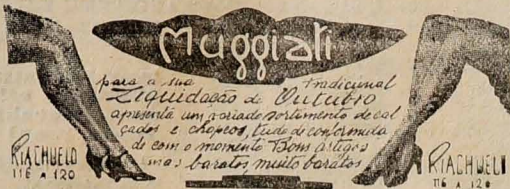 Muggiati
para a sua tradicional
Liquidação de Outubro
apresenta um variado sortimento de cal
çados e chapeos, tudo de conformida
de com o momento Bons artigos
mas baratos, muito baratos
RIACHUELO
116 A 120
RIACHUELO
116 A 120